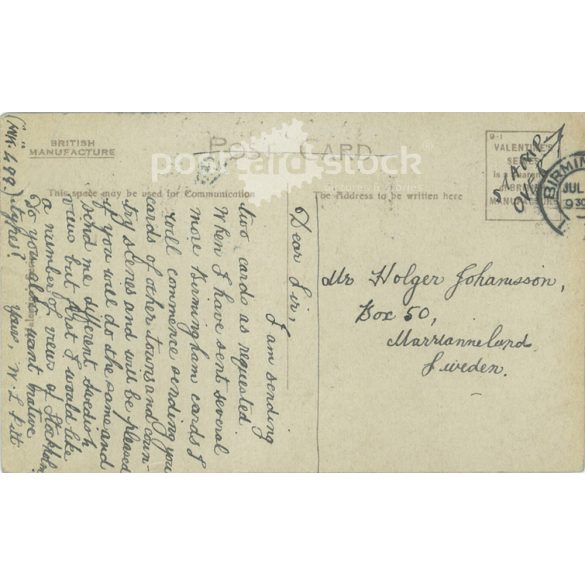 POST CARD
BRITISH
MANUFACTURE
This space may be used for Communication
The Address to be written here
9-1
VALENTINE'S
SERIES
is a guarantee
of BRITISH
MANUFACTURE
STAMP
BIRMIN
JUL
postcard-stock
Mr Holger Johansson,
Box 50,
Marrianneland
Sweden.
Dear Sir,
I am sending
two cards as requested
When I have sent several
more Birmingham cards I
will commence sending you
cards of other towns and coun-
try scenes and will be pleased
if you will do the same and
send me different Swedish
views but first I would like
a number of views of Stockholm
Do you also want native
types?
Yours, W. L. Pitt